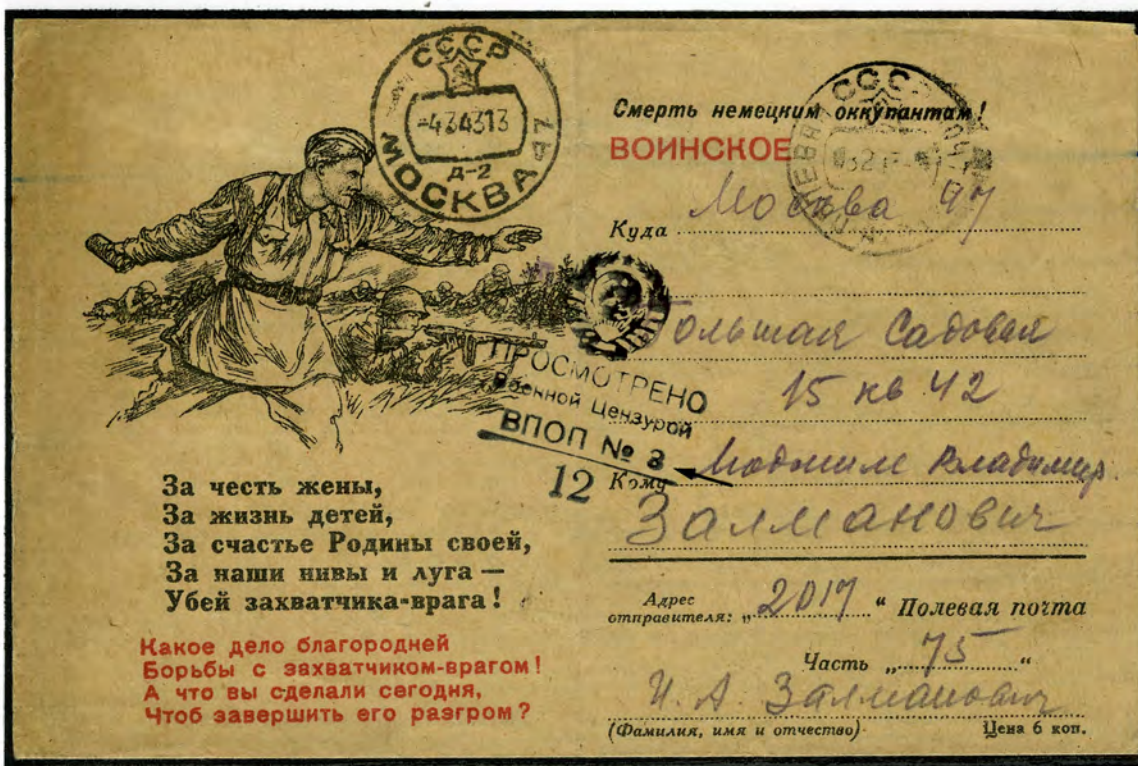 СССР
-434313
Д-2
МОСКВА
Смерть немецким оккупантам!
ВОИНСКОЕ
СССР
Куда Москва 47
Большая Садовая
15 кв 42
ПРОСМОТРЕНО
Военной Цензурой
ВПОП № 3
12
Кому Людмиле Владимир.
Залманович
За честь жены,
За жизнь детей,
За счастье Родины своей,
За наши нивы и луга —
Убей захватчика-врага!
Какое дело благородней
Борьбы с захватчиком-врагом!
А что вы сделали сегодня,
Чтоб завершить его разгром?
Адрес
отправителя: „2017“ Полевая почта
Часть „75“
И. А. Залманович
(Фамилия, имя и отчество)
Цена 6 коп.